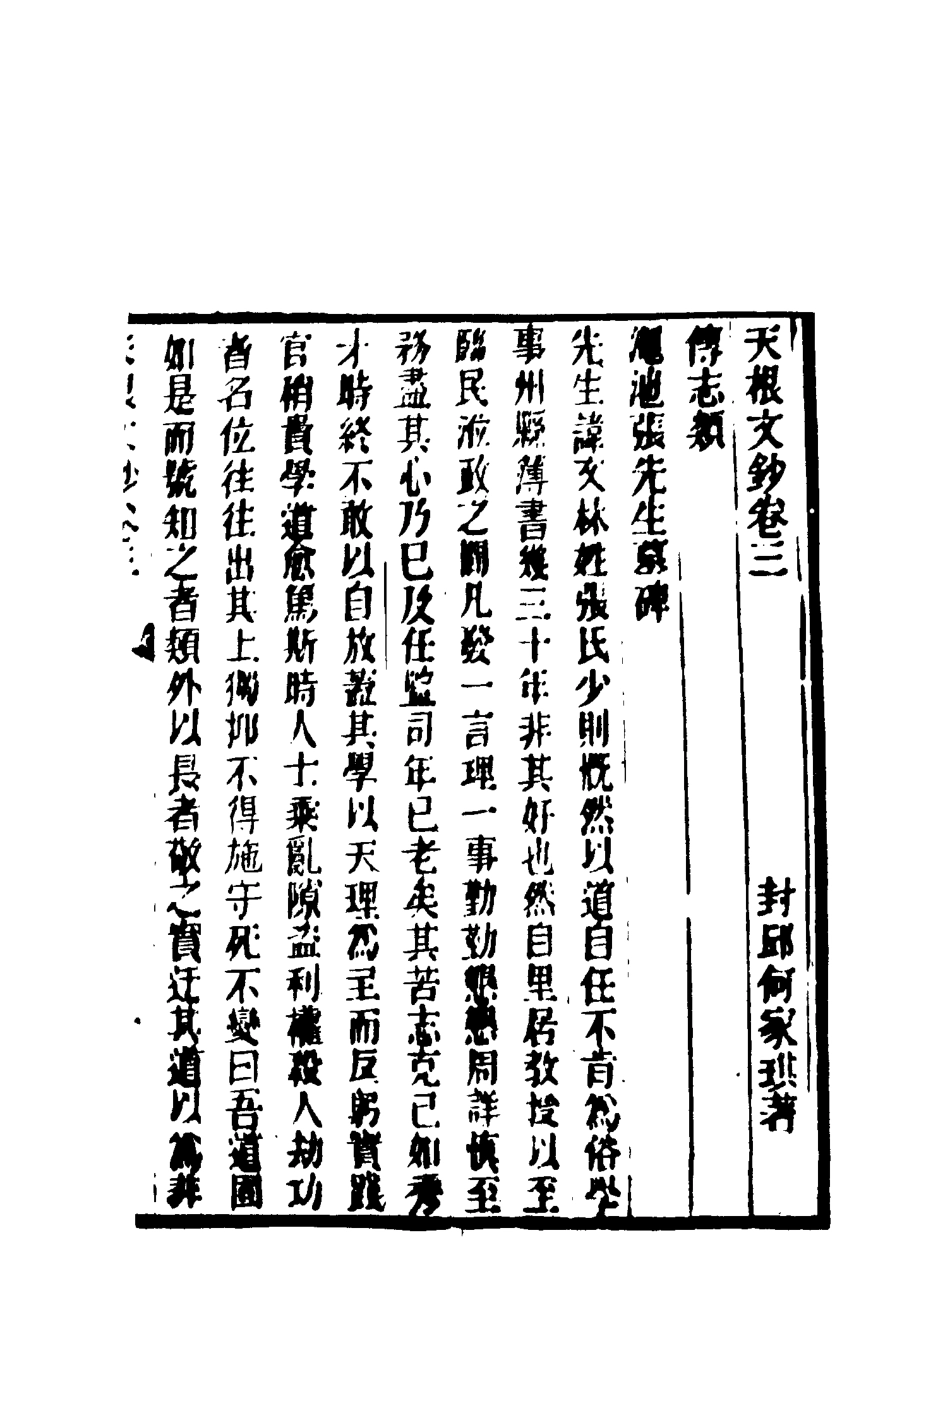 天根文鈔卷三
封邱何家琪著
傳志類
澠池張先生墓碑
先生諱文林姓張氏少則慨然以道自任不肯為俗學
事州縣薄書幾三十年非其好也然自里居教授以至
臨民涖政之間凡發一言理一事勤勤懇懇周詳慎至
務盡其心乃已及任監司年已老矣其苦志克己如秀
才時終不敢以自放蓋其學以天理為主而反躬實踐
官稍貴學道愈篤斯時人士乘亂隙盜利權殺人劫功
者名位往往出其上獨抑不得施守死不變曰吾道固
如是而號知之者類外以長者敬之實迂其道以為非